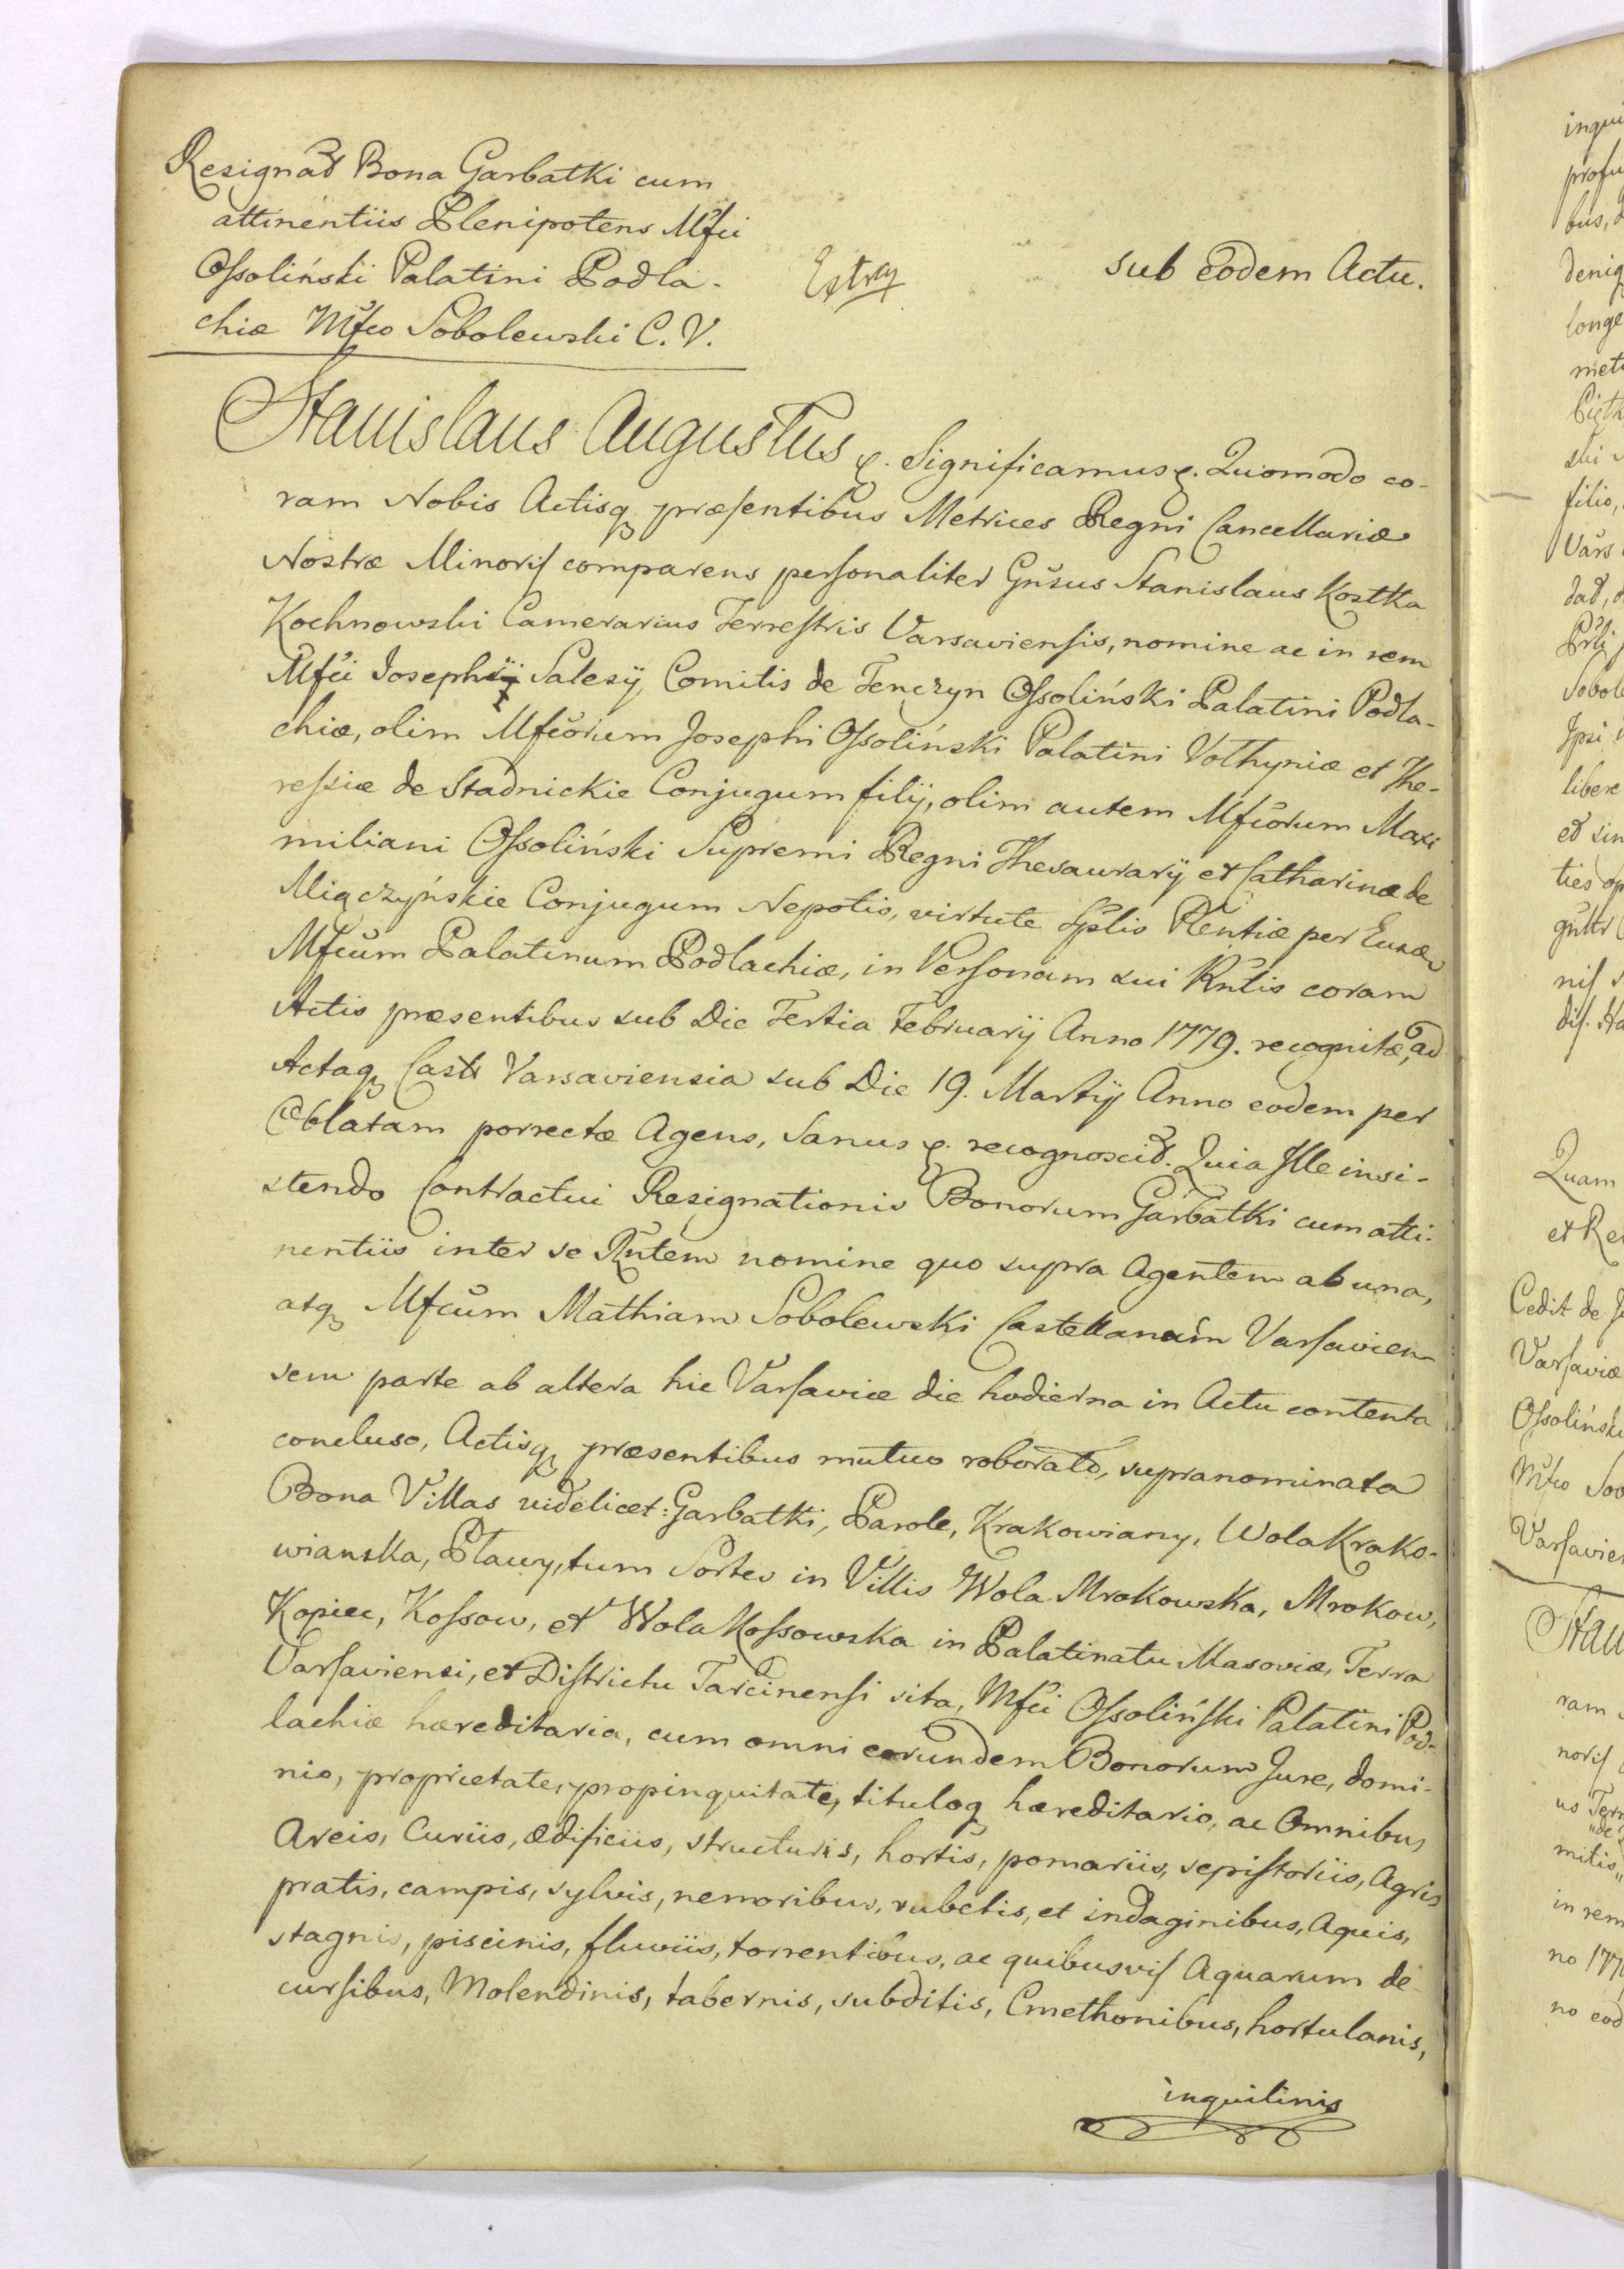 Resignat Bona Garbatki cum
attinentiis Plenipotens Mfci
Ossoliński Palatini Podla-
chiæ Mfco Sobolewski C. V.
Extrax
sub eodem Actu.
Stanislaus Augustus &. Significamus &. Quomodo co-
ram Nobis Actisq præsentibus Metrices Regni Cancellariæ
Nostræ Minoris comparens personaliter Gnsus Stanislaus Kostka
Kochnowski Camerarius Terrestris Varsaviensis, nomine ac in rem
Mfci Josephi Salesÿ Comitis de Tenczyn Ossoliński Palatini Podla-
chiæ, olim Mfcorum Josephi Ossoliński Palatini Volhyniæ et The-
ressiæ de Stadnickie Conjugum filÿ, olim autem Mfcorum Maxi
miliani Ossoliński Supremi Regni Thesaurarÿ et Catharinæ de
Miączyńskie Conjugum Nepotis, virtute Splis Plentiæ per Eundem
Mfcum Palatinum Podlachiæ, in Personam sui Rntis coram
Actis præsentibus sub Die Tertia Februarÿ Anno 1779. recognitæ, ad
Actaq Castr Varsaviensia sub Die 19. Martÿ Anno eodem per
Oblatam porrectæ Agens, Sanus &. recognoscit. Quia Ille insi-
stendo Contractui Resignationis Bonorum Garbatki cum atti-
nentiis inter se Rntem nomine quo supra Agentem ab una,
atq Mfcum Mathiam Sobolewski Castellanum Varsavien
sem parte ab altera hic Varsaviæ die hodierna in Actu contenta
concluso, Actisq præsentibus mutuo roborato, supranominata
Bona Villas videlicet: Garbatki, Parole, Krakowiany, Wola Krako-
wianska, Pławy, tum Sortes in Villis Wola Mrokowska, Mrokow,
Kopiec, Kossow, et Wola Kossowska in Palatinatu Masoviæ, Terra
Varsaviensi, et Districtu Tarcinensi sita, Mfci Ossoliński Palatini Pod-
lachiæ hæreditaria, cum omni eorundem Bonorum Jure, domi-
nio, proprietate, propinquitate, tituloq hæreditario, ac Omnibus
Areis, Curiis, ædificiis, structuris, hortis, pomariis, sepistoriis, Agris
pratis, campis, sylvis, nemoribus, rubetis, et indaginibus, Aquis,
stagnis, piscinis, fluviis, torrentibus, ac quibusvis Aquarum de-
cursibus, Molendinis, tabernis, subditis, Cmethonibus, hortulanis,
inquilinis